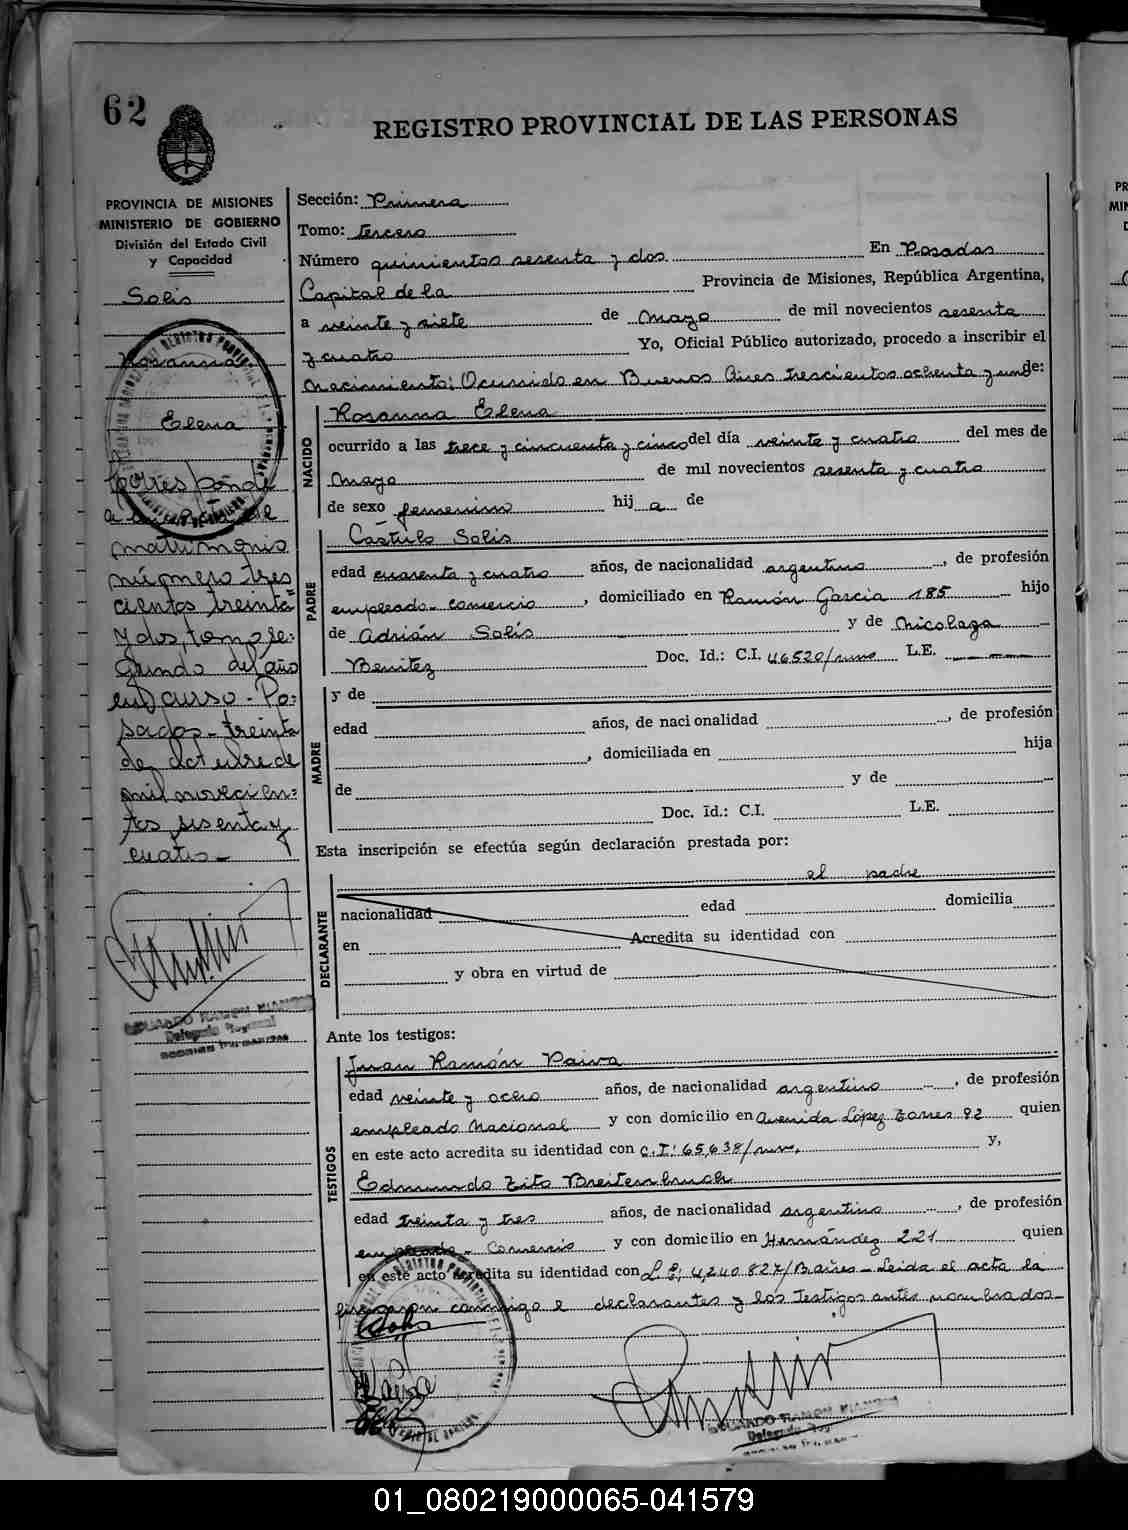 62
REGISTRO PROVINCIAL DE LAS PERSONAS
PROVINCIA DE MISIONES
MINISTERIO DE GOBIERNO
División del Estado Civil
y Capacidad
Solis
Rosanna
Elena
Corresponde
a
matrimonio
número tres
cientos treinta
y dos, tomo se-
gundo del año
en curso - Po-
sadas - treinta
de octubre de
mil novecien-
tos sesenta y
cuatro -
EDUARDO RAMON
Delegado Regional
Sección: Primera
Tomo: tercero
Número quinientos sesenta y dos En Posadas
Capital de la Provincia de Misiones, República Argentina,
a veinte y siete de mayo de mil novecientos sesenta
y cuatro Yo, Oficial Público autorizado, procedo a inscribir el
nacimiento: Ocurrido en Buenos Aires trescientos ochenta y uno de:
NACIDO
Rosanna Elena
ocurrido a las trece y cincuenta y cinco del día veinte y cuatro del mes de
mayo de mil novecientos sesenta y cuatro
de sexo femenino hij a de
PADRE
Cástulo Solis
edad cuarenta y cuatro años, de nacionalidad argentino, de profesión
empleado - comercio, domiciliado en Ramón García 185 hijo
de Adrián Solís y de Nicolaza
Benitez Doc. Id.: C.I. 46520/ L.E.
MADRE
y de
edad años, de nacionalidad , de profesión
, domiciliada en hija
de y de
Doc. Id.: C.I. L.E.
Esta inscripción se efectúa según declaración prestada por:
el padre
DECLARANTE
nacionalidad edad domicilia
en Acredita su identidad con
y obra en virtud de
Ante los testigos:
TESTIGOS
Juan Ramón Paiva
edad veinte y ocho años, de nacionalidad argentino, de profesión
empleado Nacional y con domicilio en Avenida López Torres 92 quien
en este acto acredita su identidad con C.I: 65,638/ y,
Edmundo Zito Breitenbruch
edad treinta y tres años, de nacionalidad argentino, de profesión
empleado - Comercio y con domicilio en Hernández 221 quien
en este acto acredita su identidad con L E; 4,240 827/B aires - Leida el acta la
firmaron conmigo e declarantes y los testigos antes nombrados -
Solis
Paiva
EDUARDO RAMON
Delegado
01_080219000065-041579